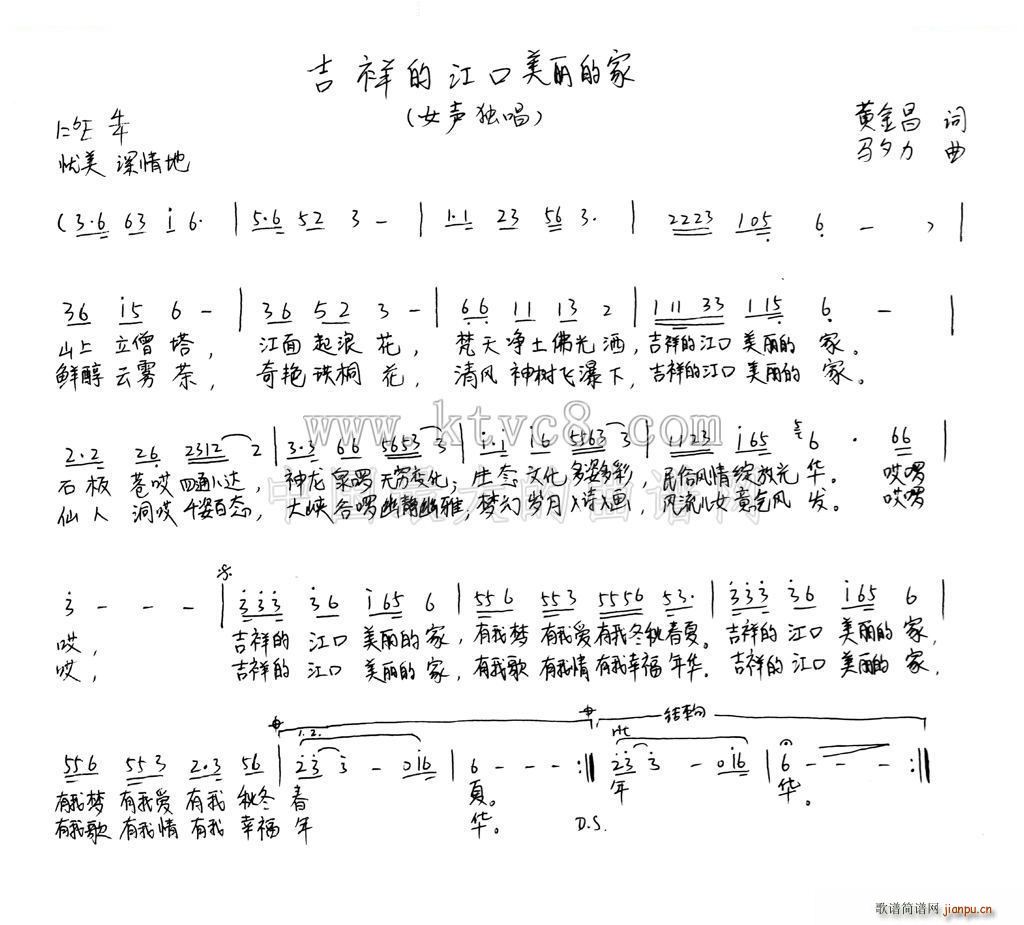 吉祥的江口美丽的家
(女声独唱)
黄金昌 词
1=♭E 4/4
马夕力 曲
优美 深情地
(3·6 63 i 6· | 5·6 52 3 - | 1·1 23 56 3· | 2223 105 6 - - ) |
36 i5 6 - | 36 52 3 - | 66 11 13 2 | 111 33 115 6 - |
山上 立僧塔, 江面 起浪花, 梵天净土佛光洒, 吉祥的江口 美丽的 家。
鲜醇 云雾茶, 奇艳珙桐花, 清风神树飞瀑下, 吉祥的江口 美丽的 家。
www.ktvc8.com
2·2 26 2312 2 | 3·3 66 5653 3 | i·i i6 5563 3 | 1123 i65 6 · 66
石板 苍哎 四通八达, 神龙泉啰无穷变化; 生态文化多姿多彩, 民俗风情绽放光华。 哎啰
仙人 洞哎 千姿百态, 大峡谷啰幽静幽雅; 梦幻岁月入诗入画, 风流儿女意气风发。 哎啰
3 - - - | 333 36 i65 6 | 556 553 5556 53· | 333 36 i65 6 |
哎, 吉祥的 江口 美丽的家, 有我梦 有我爱 有我冬秋春夏。 吉祥的 江口 美丽的 家,
哎, 吉祥的 江口 美丽的家, 有我歌 有我情 有我幸福 年华。 吉祥的 江口 美丽的 家,
结束句
1.2. rit
556 553 2·3 56 | 23 3 - 016 | 6 - - - :‖ 23 3 - 016 | 6 - - - :‖
有我梦 有我爱 有我 秋冬 春 夏。 年 华。
有我歌 有我情 有我 幸福 年 华。 D.S.
歌谱简谱网 jianpu.cn